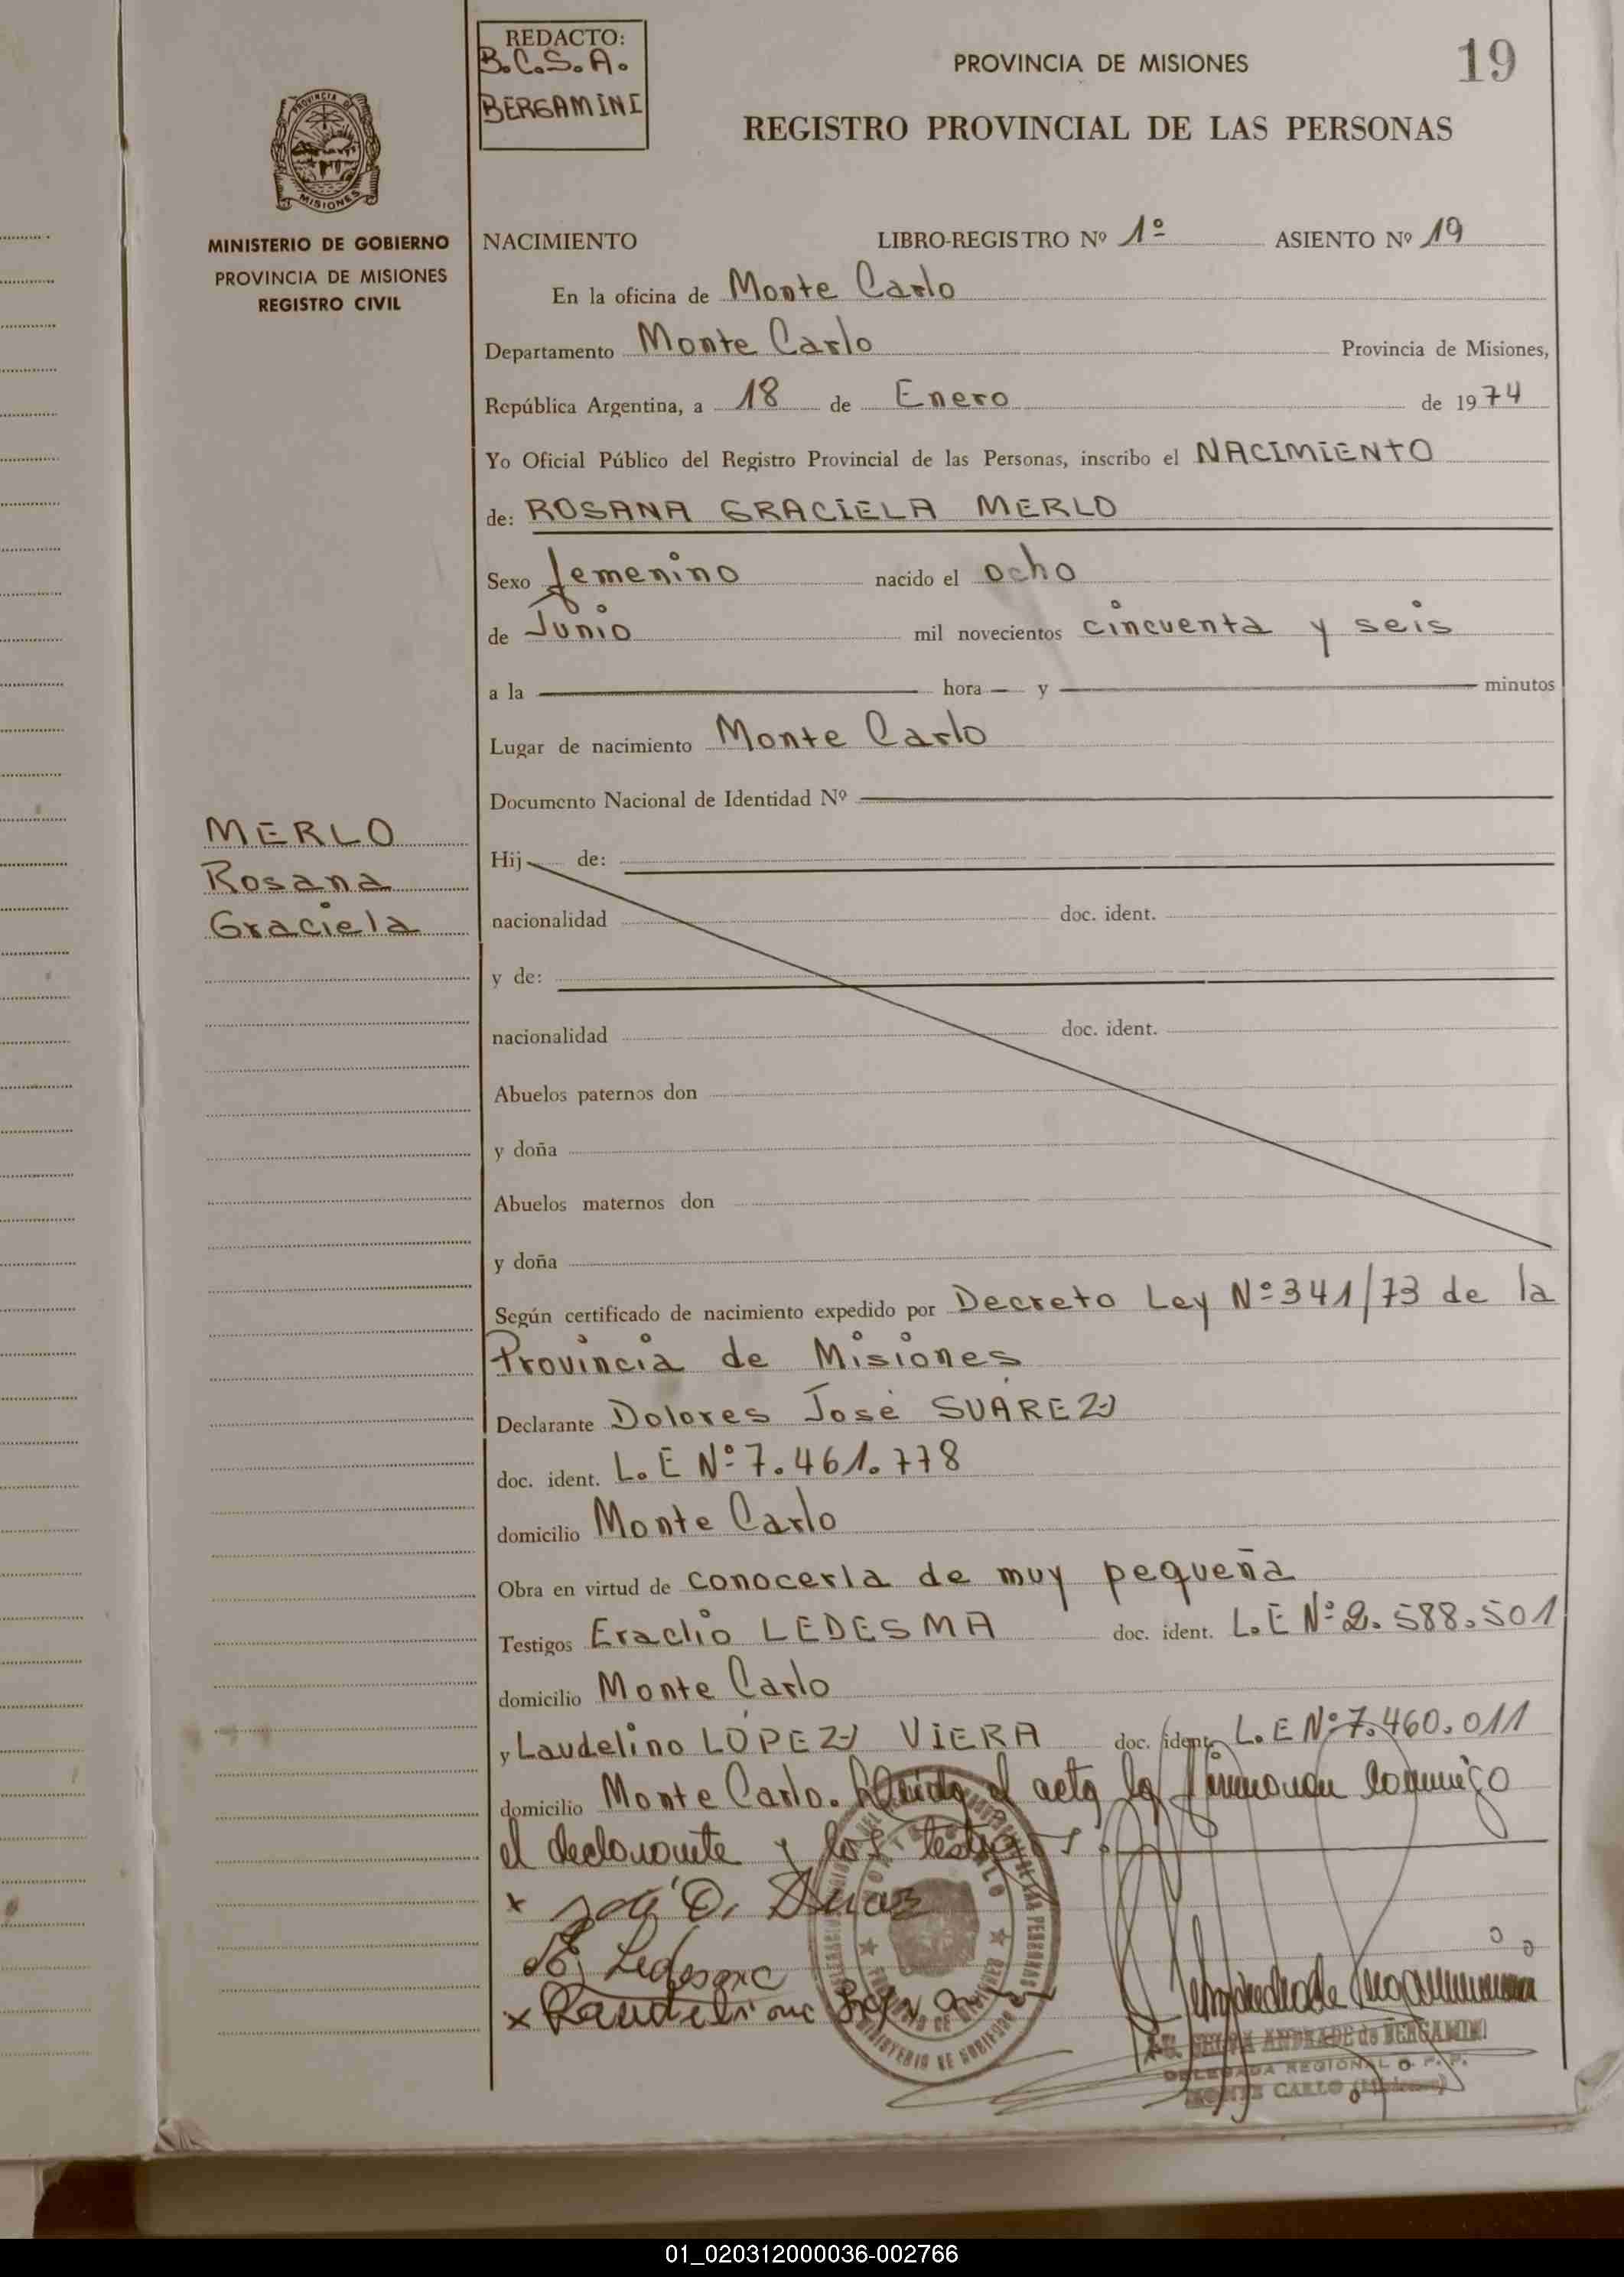 REDACTO:
B.C.S.A.
BERGAMINI
PROVINCIA DE MISIONES
19
REGISTRO PROVINCIAL DE LAS PERSONAS
PROVINCIA DE
MISIONES
MINISTERIO DE GOBIERNO
PROVINCIA DE MISIONES
REGISTRO CIVIL
NACIMIENTO LIBRO-REGISTRO Nº 1º ASIENTO Nº 19
En la oficina de Monte Carlo
Departamento Monte Carlo Provincia de Misiones,
República Argentina, a 18 de Enero de 1974
Yo Oficial Público del Registro Provincial de las Personas, inscribo el NACIMIENTO
de: ROSANA GRACIELA MERLO
Sexo femenino nacido el ocho
de Junio mil novecientos cincuenta y seis
a la hora y minutos
Lugar de nacimiento Monte Carlo
Documento Nacional de Identidad Nº
MERLO
Rosana
Graciela
Hij de:
nacionalidad doc. ident.
y de:
nacionalidad doc. ident.
Abuelos paternos don
y doña
Abuelos maternos don
y doña
Según certificado de nacimiento expedido por Decreto Ley Nº 341/73 de la
Provincia de Misiones
Declarante Dolores José SUÁREZ
doc. ident. L.E Nº 7.461.778
domicilio Monte Carlo
Obra en virtud de conocerla de muy pequeña
Testigos Eraclio LEDESMA doc. ident. L.E Nº 2.588.501
domicilio Monte Carlo
y Laudelino LÓPEZ VIERA doc. ident. L.E Nº 7.460.011
domicilio Monte Carlo. Leída el acta la firman conmigo
el declarante y los testigos
José D. Suarez
E. Ledesma
Laudelino
ANDRADE de BERGAMINI
DELEGADA REGIONAL
MONTE CARLO (Misiones)
01_020312000036-002766